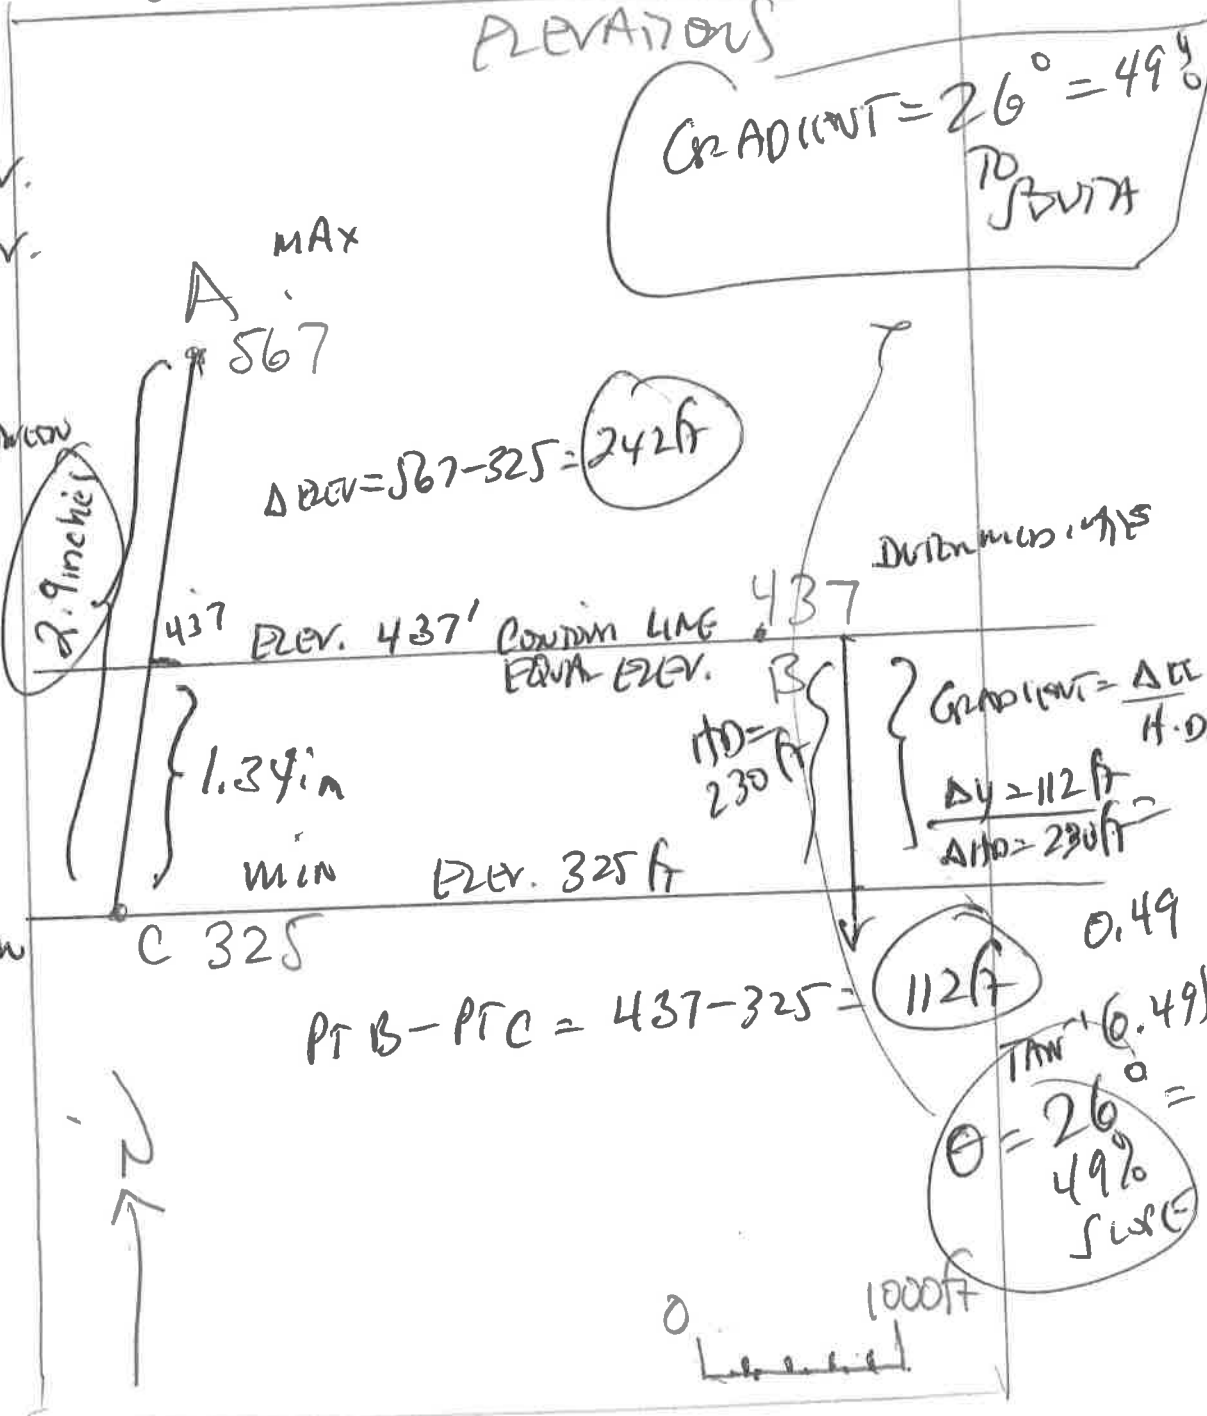 ELEVATIONS
GRADIENT = 26° = 49%
TO
SOUTH
V.
V.
MAX
A
567
Δ ELEV = 567-325 = 242 ft
2.9 inches
437
437
ELEV. 437' CONTOUR LINE
EQUAL ELEV.
B
HD =
230 ft
GRADIENT = Δ EL
H.D
ΔY = 112 ft
ΔHD = 230 ft =
0.49
1.34 in
min
ELEV. 325 ft
C 325
PT B - PT C = 437-325 = 112 ft
TAN⁻¹ (0.49)
θ = 26° =
49%
SLOPE
0
1000 ft